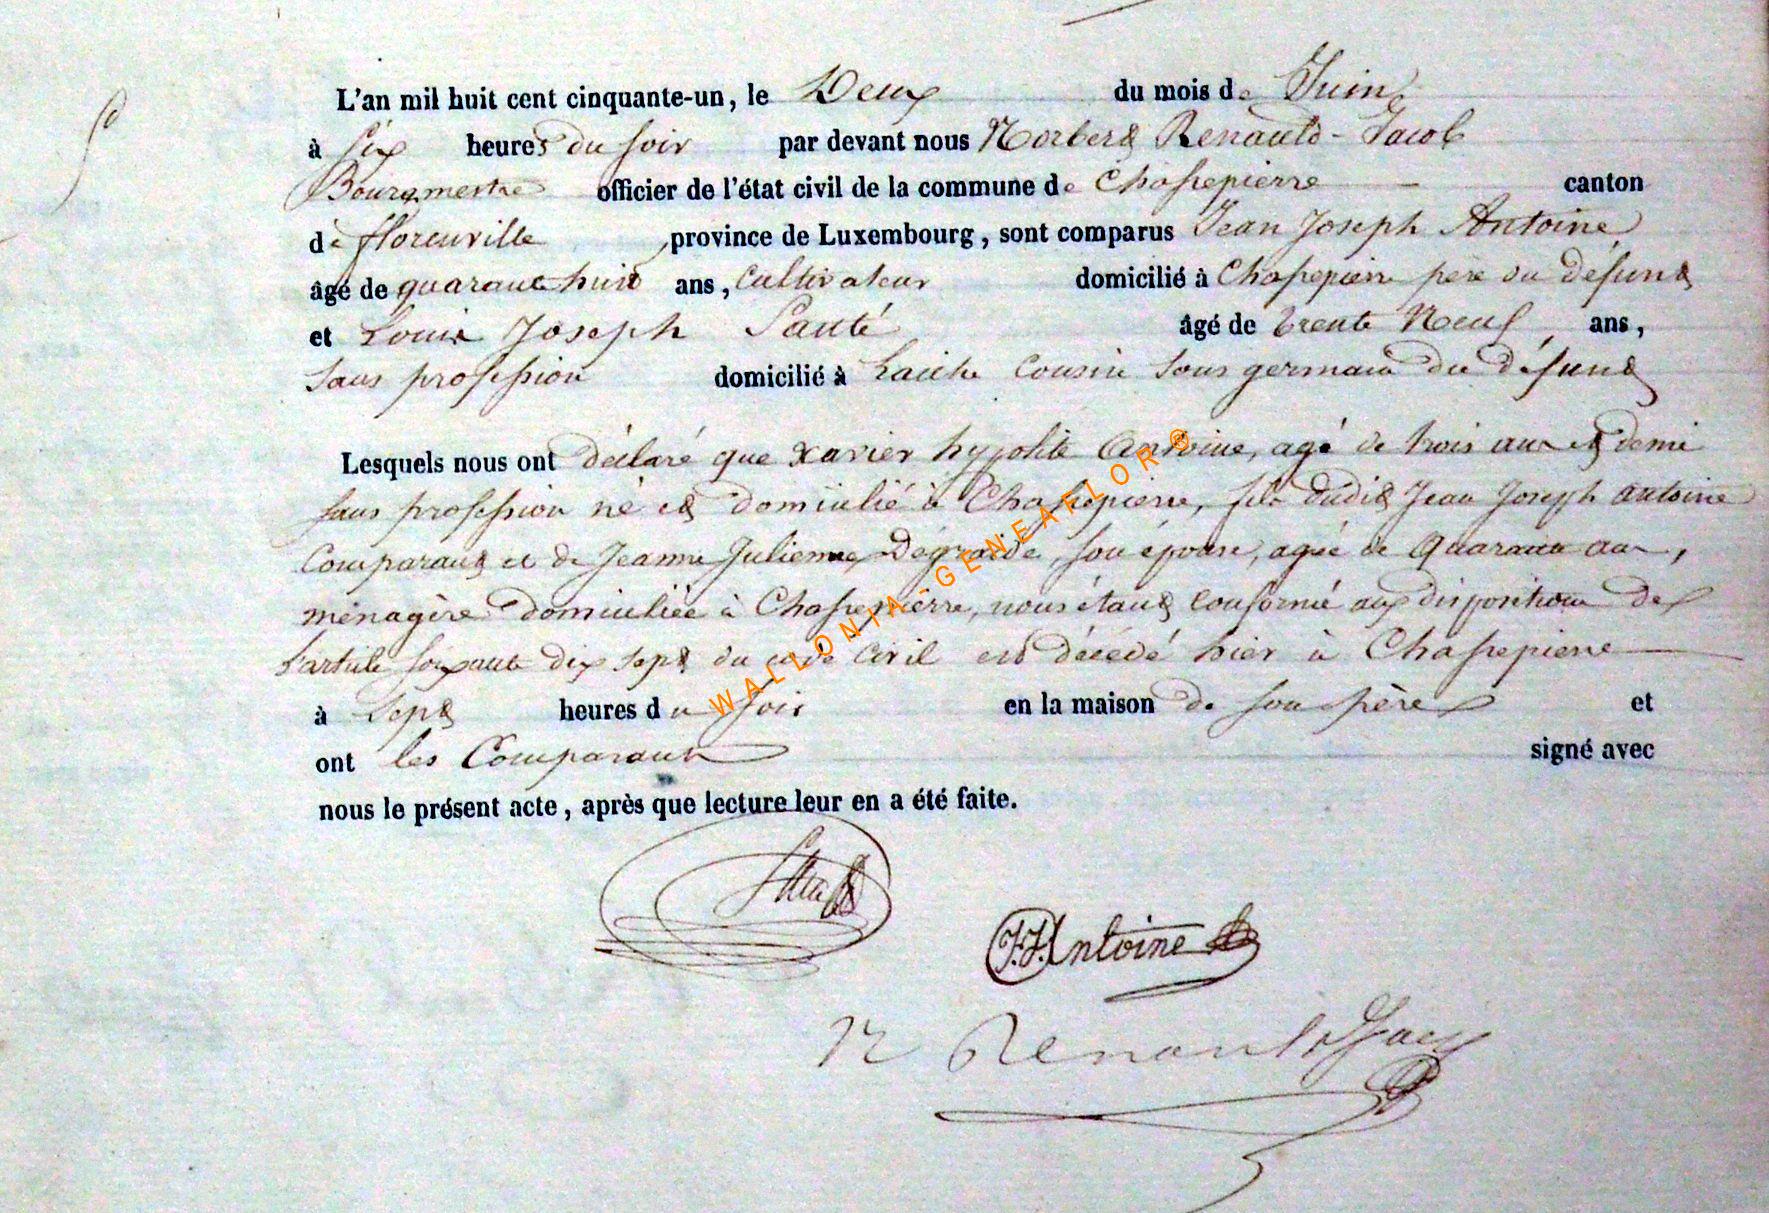 L'an mil huit cent cinquante-un, le Deux du mois de Juin
à Six heures du soir par devant nous Norbert Renauld-Jacob
Bourgmestre officier de l'état civil de la commune de Chassepierre - canton
de florenville, province de Luxembourg, sont comparus Jean Joseph Antoine
âgé de quarante huit ans, Cultivateur domicilié à Chassepierre père du défunt
et Louis Joseph âgé de trente Neuf ans,
sans profession domicilié à Laiche Cousin sous germain du défunt
Lesquels nous ont déclaré que xavier hypolite Antoine, agé de trois ans et demi
sans profession né et domicilié à Chassepierre, fils dudit Jean Joseph antoine
Comparant et de Jeanne Julienne, son épouse, agée de Quarante ans,
ménagère domiciliée à Chassepierre, nous étant conformé aux dispositions de
l'article soixante dix sept du code Civil est décédé hier à Chassepierre
à Sept heures du soir en la maison de son père et
ont les Comparants signé avec
nous le présent acte, après que lecture leur en a été faite.
J.J. Antoine
N Renauld Jacob
WALLONIA-GENEAFLOR ®